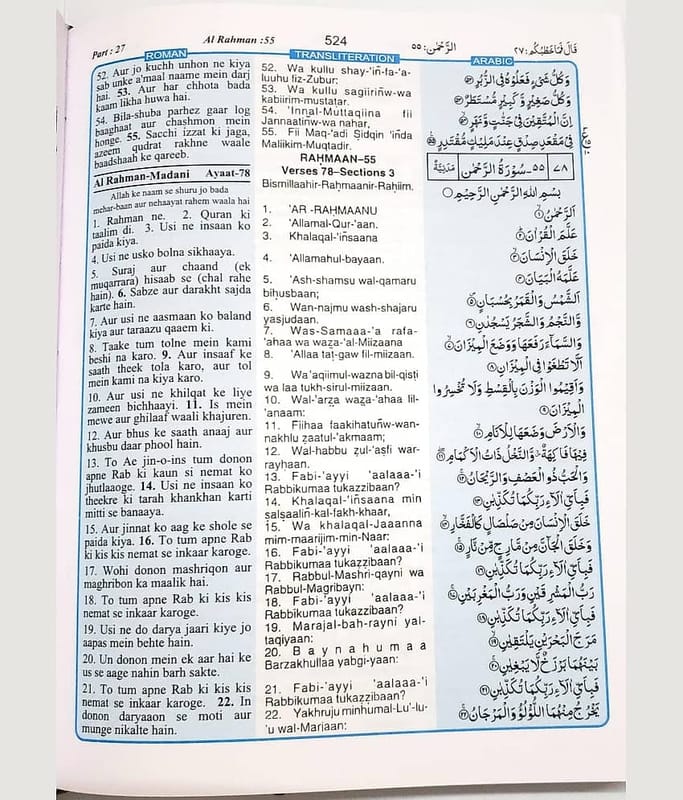 Part : 27
Al Rahman :55
524
الرَّحْمٰن: ٥٥
قَالَ فَمَا خَطْبُكُمْ: ٢٧
ROMAN
52. Aur jo kuchh unhon ne kiya
sab unke a'maal naame mein darj
hai. 53. Aur har chhota bada
kaam likha huwa hai.
54. Bila-shuba parhez gaar log
baaghaat aur chashmon mein
honge. 55. Sacchi izzat ki jaga,
azeem qudrat rakhne waale
baadshaah ke qareeb.
Al Rahman-Madani Ayaat-78
Allah ke naam se shuru jo bada
mehar-baan aur nehaayat rahem waala hai
1. Rahman ne. 2. Quran ki
taalim di. 3. Usi ne insaan ko
paida kiya.
4. Usi ne usko bolna sikhaaya.
5. Suraj aur chaand (ek
muqarrara) hisaab se (chal rahe
hain). 6. Sabze aur darakht sajda
karte hain.
7. Aur usi ne aasmaan ko baland
kiya aur taraazu qaaem ki.
8. Taake tum tolne mein kami
beshi na karo. 9. Aur insaaf ke
saath theek tola karo, aur tol
mein kami na kiya karo.
10. Aur usi ne khilqat ke liye
zameen bichhaayi. 11. Is mein
mewe aur ghilaaf waali khajuren.
12. Aur bhus ke saath anaaj aur
khusbu daar phool hain.
13. To Ae jin-o-ins tum donon
apne Rab ki kaun si nemat ko
jhutlaaoge. 14. Usi ne insaan ko
theekre ki tarah khankhan karti
mitti se banaaya.
15. Aur jinnat ko aag ke shole se
paida kiya. 16. To tum apne Rab
ki kis kis nemat se inkaar karoge.
17. Wohi donon mashriqon aur
maghribon ka maalik hai.
18. To tum apne Rab ki kis kis
nemat se inkaar karoge.
19. Usi ne do darya jaari kiye jo
aapas mein behte hain.
20. Un donon mein ek aar hai ke
us se aage nahin barh sakte.
21. To tum apne Rab ki kis kis
nemat se inkaar karoge. 22. In
donon daryaaon se moti aur
munge nikalte hain.
TRANSLITERATION
52. Wa kullu shay-'iñ-fa-'a-
luuhu fiz-Zubur:
53. Wa kullu sagiiriñw-wa
kabiirim-mustaṭar.
54. 'Innal-Muttaqiina fii
Jannaatiñw-wa nahar,
55. Fii Maq-'adi Ṣidqin 'iñda
Maliikim-Muqtadir.
RAḤMAAN–55
Verses 78–Sections 3
Bismillaahir-Raḥmaanir-Raḥiim.
1. 'AR -RAḤMAANU
2. 'Allamal-Qur-'aan.
3. Khalaqal-'iñsaana
4. 'Allamahul-bayaan.
5. 'Ash-shamsu wal-qamaru
biḥusbaan;
6. Wan-najmu wash-shajaru
yasjudaan.
7. Was-Samaaa-'a rafa-
'ahaa wa waẓa-'al-Miizaana
8. 'Allaa taṭ-gaw fil-miizaan.
9. Wa'aqiimul-wazna bil-qisṭi
wa laa tukh-sirul-miizaan.
10. Wal-'arẓa waẓa-'ahaa lil-
'anaam:
11. Fiihaa faakihatuñw-wan-
nakhlu ẓaatul-akmaam;
12. Wal-habbu ẓul-'aṣfi war-
rayḥaan.
13. Fabi-'ayyi 'aalaaa-'i
Rabbikumaa tukaẓẓibaan?
14. Khalaqal-'iñsaana min
ṣalṣaaliñ-kal-fakh-khaar,
15. Wa khalaqal-Jaaanna
mim-maarijim-min-Naar:
16. Fabi-'ayyi 'aalaaa-'i
Rabbikumaa tukaẓẓibaan?
17. Rabbul-Mashri-qayni wa
Rabbul-Magribayn:
18. Fabi-'ayyi 'aalaaa-'i
Rabbikumaa tukaẓẓibaan?
19. Marajal-bah-rayni yal-
taqiyaan:
20. Baynahumaa
Barzakhullaa yabgi-yaan:
21. Fabi-'ayyi 'aalaaa-'i
Rabbikumaa tukaẓẓibaan?
22. Yakhruju minhumal-Lu'-lu-
'u wal-Marjaan:
ARABIC
وَكُلُّ شَيْءٍ فَعَلُوْهُ فِي الزُّبُرِ ۝٥٢
وَكُلُّ صَغِيْرٍ وَّكَبِيْرٍ مُّسْتَطَرٌ ۝٥٣
اِنَّ الْمُتَّقِيْنَ فِيْ جَنّٰتٍ وَّنَهَرٍ ۝٥٤
فِيْ مَقْعَدِ صِدْقٍ عِنْدَ مَلِيْكٍ مُّقْتَدِرٍ ۝٥٥
٧٨ ٥٥-سُوْرَةُ الرَّحْمٰنِ مَدَنِيَّةٌ
بِسْمِ اللّٰهِ الرَّحْمٰنِ الرَّحِيْمِ
اَلرَّحْمٰنُ ۝١
عَلَّمَ الْقُرْاٰنَ ۝٢
خَلَقَ الْاِنْسَانَ ۝٣
عَلَّمَهُ الْبَيَانَ ۝٤
اَلشَّمْسُ وَالْقَمَرُ بِحُسْبَانٍ ۝٥
وَّالنَّجْمُ وَالشَّجَرُ يَسْجُدٰنِ ۝٦
وَالسَّمَآءَ رَفَعَهَا وَوَضَعَ الْمِيْزَانَ ۝٧
اَلَّا تَطْغَوْا فِي الْمِيْزَانِ ۝٨
وَاَقِيْمُوا الْوَزْنَ بِالْقِسْطِ وَلَا تُخْسِرُوا
الْمِيْزَانَ ۝٩
وَالْاَرْضَ وَضَعَهَا لِلْاَنَامِ ۝١٠
فِيْهَا فَاكِهَةٌ وَّالنَّخْلُ ذَاتُ الْاَكْمَامِ ۝١١
وَالْحَبُّ ذُو الْعَصْفِ وَالرَّيْحَانُ ۝١٢
فَبِاَيِّ اٰلَآءِ رَبِّكُمَا تُكَذِّبٰنِ ۝١٣
خَلَقَ الْاِنْسَانَ مِنْ صَلْصَالٍ كَالْفَخَّارِ ۝١٤
وَخَلَقَ الْجَآنَّ مِنْ مَّارِجٍ مِّنْ نَّارٍ ۝١٥
فَبِاَيِّ اٰلَآءِ رَبِّكُمَا تُكَذِّبٰنِ ۝١٦
رَبُّ الْمَشْرِقَيْنِ وَرَبُّ الْمَغْرِبَيْنِ ۝١٧
فَبِاَيِّ اٰلَآءِ رَبِّكُمَا تُكَذِّبٰنِ ۝١٨
مَرَجَ الْبَحْرَيْنِ يَلْتَقِيٰنِ ۝١٩
بَيْنَهُمَا بَرْزَخٌ لَّا يَبْغِيٰنِ ۝٢٠
فَبِاَيِّ اٰلَآءِ رَبِّكُمَا تُكَذِّبٰنِ ۝٢١
يَخْرُجُ مِنْهُمَا اللُّؤْلُؤُ وَالْمَرْجَانُ ۝٢٢